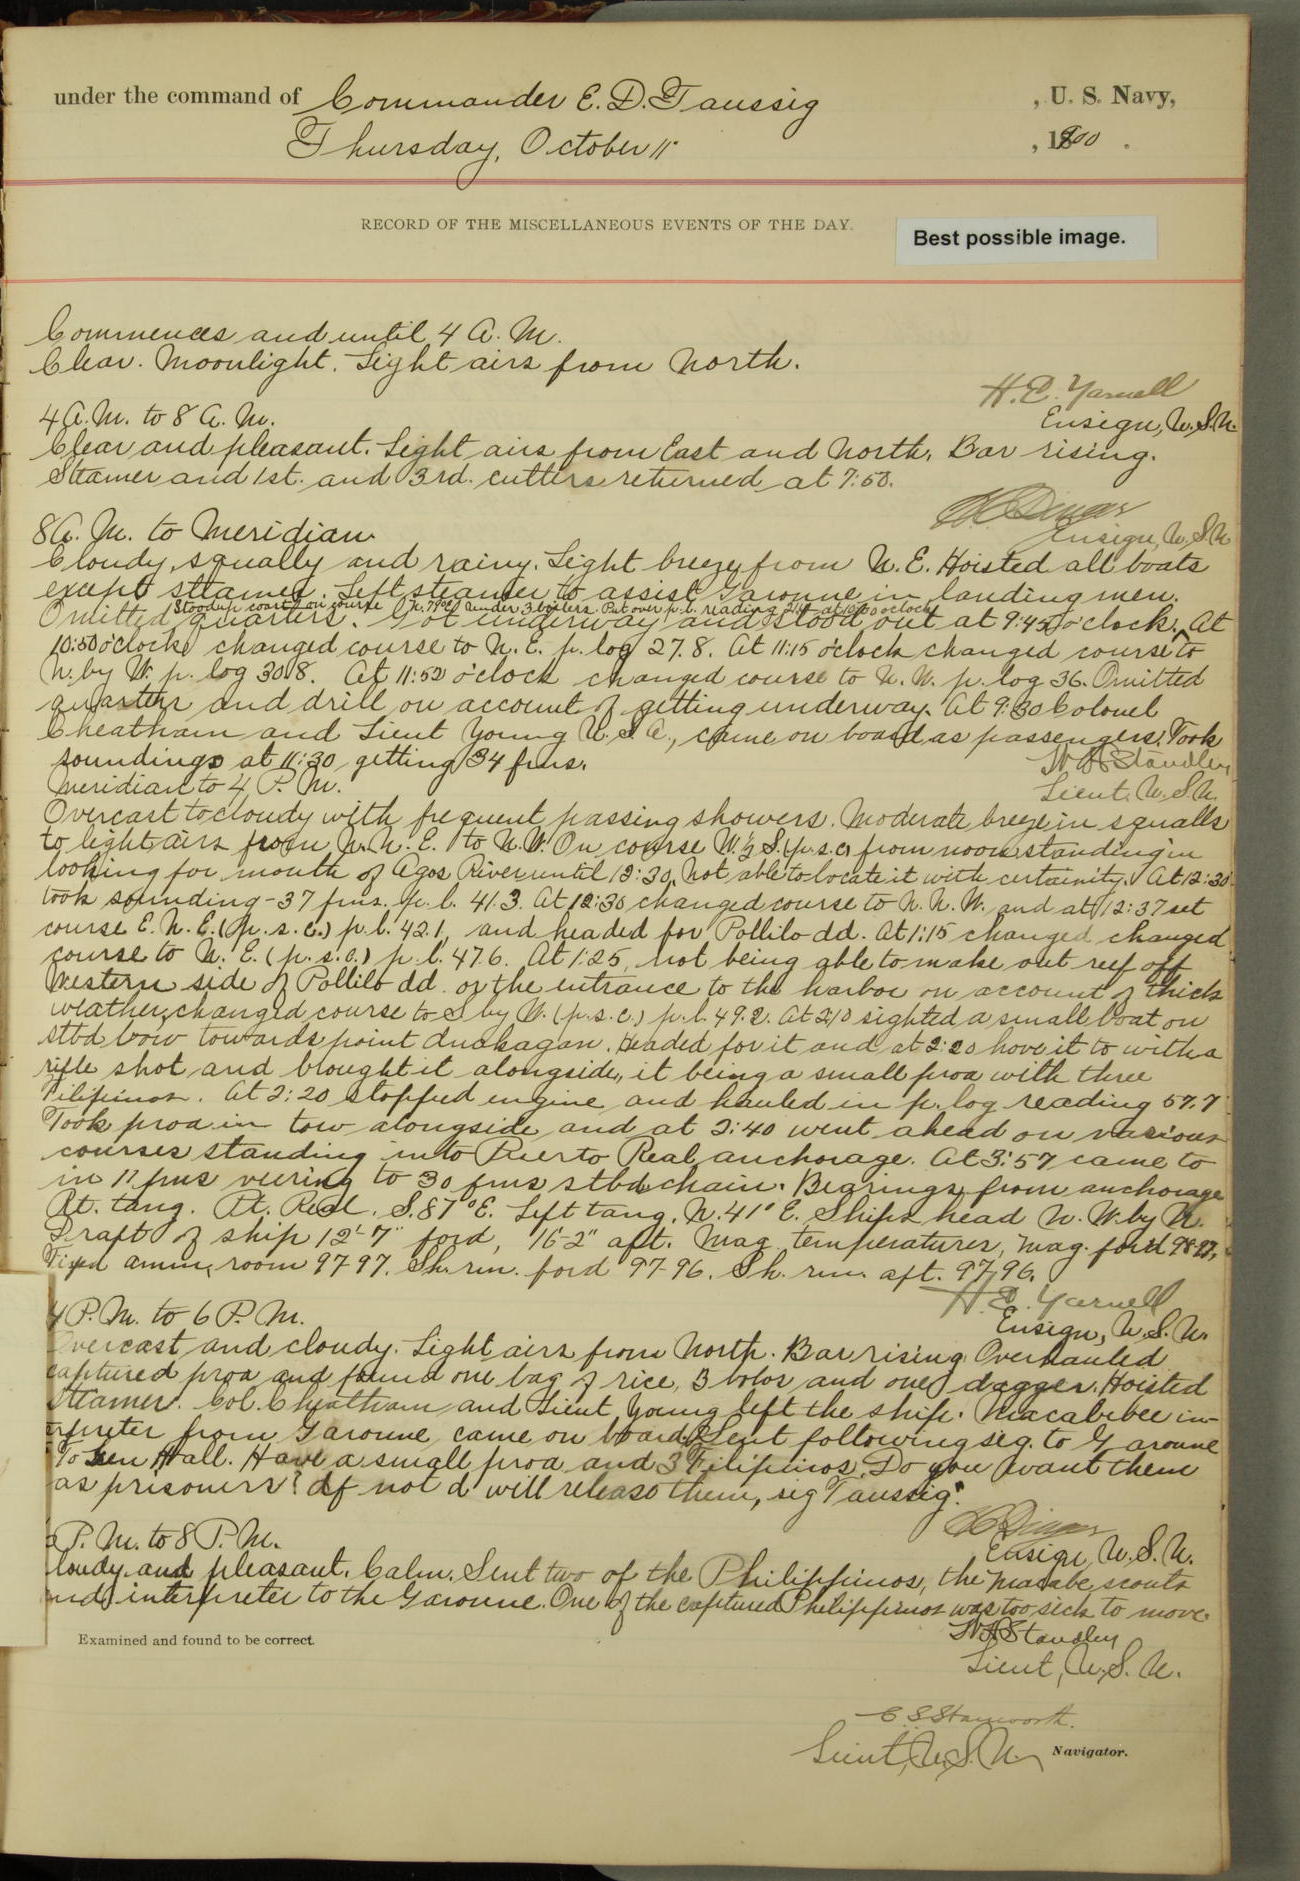 under the command of Commander E. D. Taussig , U. S. Navy,
Thursday, October 11 , 1900 .
RECORD OF THE MISCELLANEOUS EVENTS OF THE DAY.
Best possible image.
Commences and until 4 A. M.
Clear. Moonlight. Light airs from North.
H. E. Yarnell
Ensign, U.S.N.
4 A.M. to 8 A. M.
Clear and pleasant. Light airs from East and North. Bar rising.
Steamer and 1st. and 3rd. cutters returned at 7:50.
Ensign, U.S.N
8 A. M. to Meridian.
Cloudy, squally and rainy. Light breeze from N. E. Hoisted all boats
except steamer. Left steamer to assist Garonne in landing men.
Stood up coast on course under 3 boilers. Put over p. l. reading at o'clock
Omitted quarters. Got underway and stood out at 9:45 o'clock. At
10:50 o'clock changed course to N. E. p. log 27.8. At 11:15 o'clock changed course to
N. by W. p. log 30.8. At 11:52 o'clock changed course to N. W. p. log 36. Omitted
quarters and drill on account of getting underway. At 9:30 Colonel
Cheatham and Lieut Young U. S. A., came on board as passengers. Took
soundings at 11:30 getting 34 fms.
W H Standley
Lieut. U.S.N.
Meridian to 4 P. M.
Overcast to cloudy with frequent passing showers. Moderate breeze in squalls
to light airs from N. N. E. to N. W. On course W. ½ S. (p. s. c) from noon standing in
looking for mouth of Agos River until 12:30. Not able to locate it with certainity. At 12:30
took sounding - 37 fms. p. l. 41.3. At 12:30 changed course to N. N. W. and at 12:37 set
course E. N. E. (p. s. c.) p. l. 42.1, and headed for Pollilo dd. At 1:15 changed changed
course to N. E. (p. s. c.) p. l. 47.6. At 1:25, not being able to make out reef off
Western side of Pollilo dd. or the entrance to the harbor on account of thick
weather, changed course to S by W. (p. s. c.) p. l. 49.2. At 2:10 sighted a small boat on
stbd bow towards point . Headed for it and at 2:20 hove it to with a
rifle shot and brought it alongside, it being a small proa with three
Filipinos. At 2:20 stopped engine and hauled in p. log reading 57.7
Took proa in tow alongside and at 2:40 went ahead on various
courses standing into Puerto Real anchorage. At 3:57 came to
in 11 fms veering to 30 fms stbd chain. Bearings from anchorage
Rt. tang. Pt. Real, S. 87° E. Left tang. N. 41° E. Ships head N. W. by N.
Draft of ship 12'-7" ford, 16'-2" aft. Mag temperatures, mag. ford 98-97,
Fixed ammn. room 97-97. Sh. rm. ford 97-96. Sh. rm. aft. 97-96.
H. E. Yarnell
Ensign, U.S.N.
4 P. M. to 6 P. M.
Overcast and cloudy. Light airs from North. Bar rising. Overhauled
captured proa and found one bag of rice, 3 bolos and one dagger. Hoisted
Steamer. Col. Cheatham and Lieut Young left the ship. Macabebee in-
terpreter from Garonne came on board. Sent following sig. to Garonne
"To Gen Hall. Have a small proa and 3 Filipinos. Do you want them
as prisoners? If not I will release them, sig Taussig".
Ensign, U. S. N.
6 P. M. to 8 P. M.
Cloudy and pleasant. Calm. Sent two of the Philippinos, the Macabe scouts
and interpreter to the Garonne. One of the captured Philippinos was too sick to move.
W H Standley
Lieut, U. S. N.
Examined and found to be correct.
Lieut, U. S. N. Navigator.